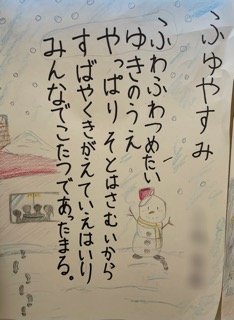 ふゆやすみ
ふわふわつめたい
ゆきのうえ
やっぱりそとはさむいから
すばやくきがえていえはいり
みんなでこたつであったまる。